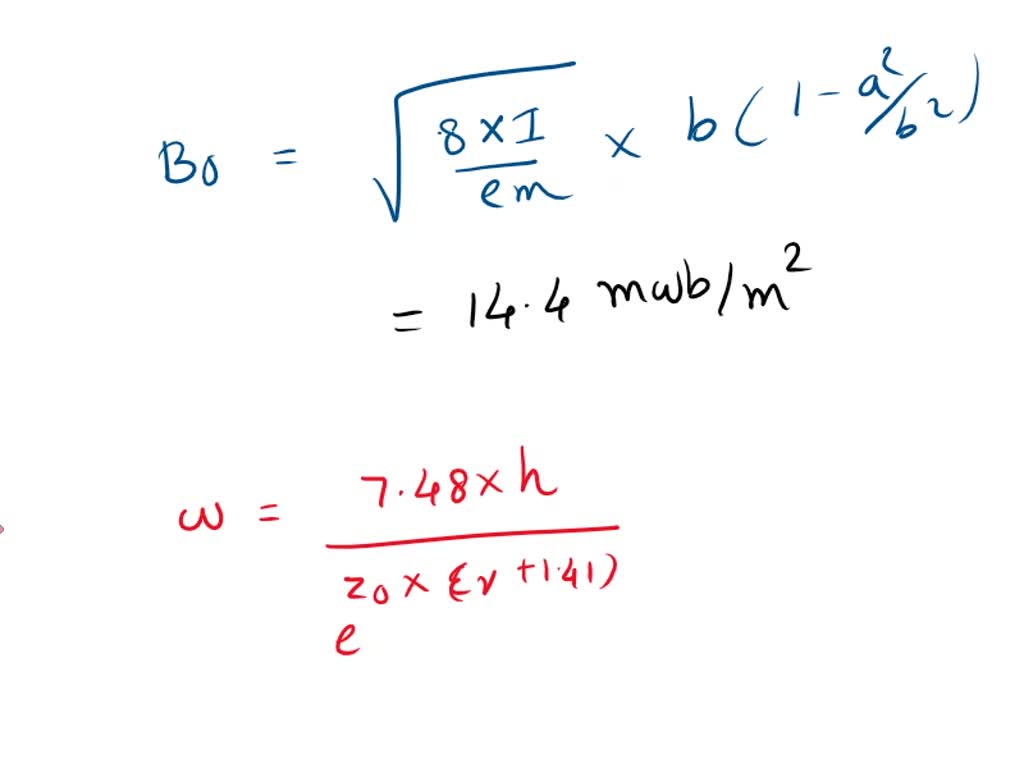 B0 = √(8 × I / em) × b(1 - a²/b²)
= 14.4 mwb/m²
w = 7.48 × h
z0 × (εr + 1.41)
e